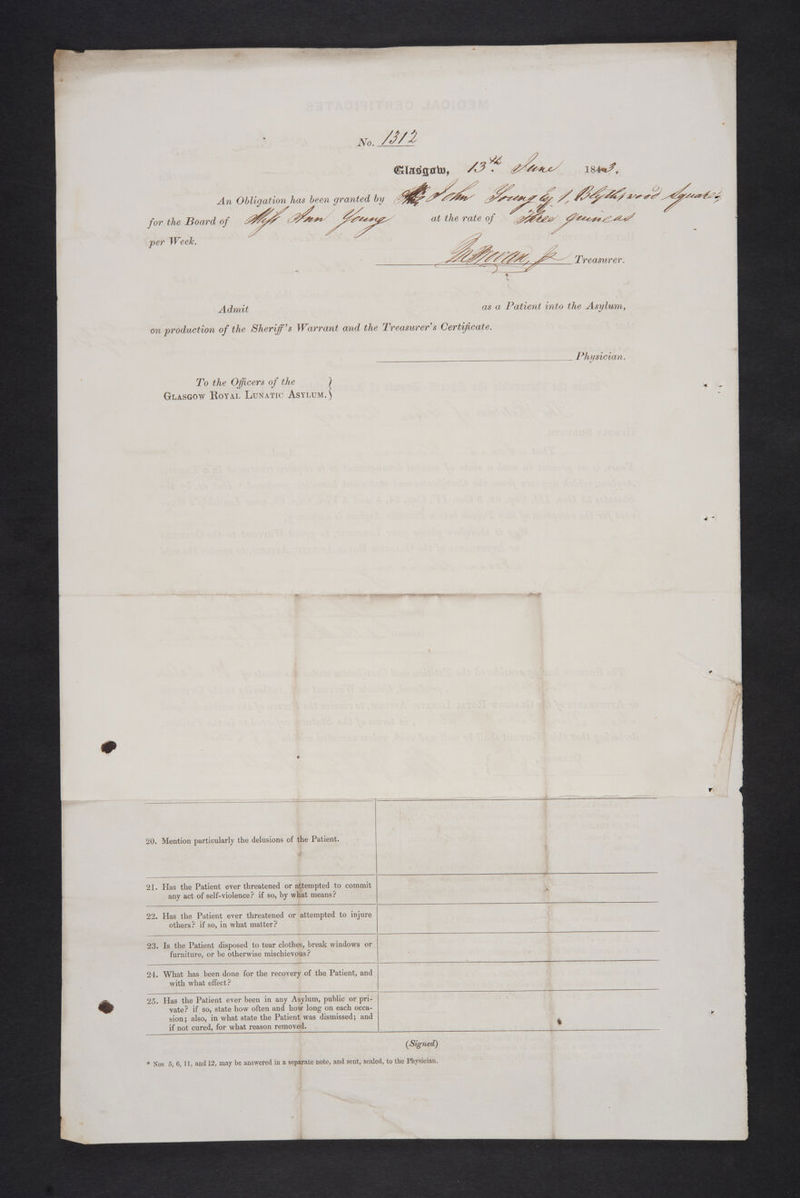 No. 1312
Glasgow, 13th June 1843.
An Obligation has been granted by John Young Esq. 1, Blythswood Square
for the Board of Miss Ann Young at the rate of Three guineas
per Week.
Treasurer.
Admit as a Patient into the Asylum,
on production of the Sheriff's Warrant and the Treasurer's Certificate.
Physician.
To the Officers of the
GLASGOW ROYAL LUNATIC ASYLUM.
20. Mention particularly the delusions of the Patient.
21. Has the Patient ever threatened or attempted to commit
any act of self-violence? if so, by what means?
22. Has the Patient ever threatened or attempted to injure
others? if so, in what matter?
23. Is the Patient disposed to tear clothes, break windows or
furniture, or be otherwise mischievous?
24. What has been done for the recovery of the Patient, and
with what effect?
25. Has the Patient ever been in any Asylum, public or pri-
vate? if so, state how often and how long on each occa-
sion; also, in what state the Patient was dismissed; and
if not cured, for what reason removed.
(Signed)
* Nos 5, 6, 11, and 12, may be answered in a separate note, and sent, sealed, to the Physician.